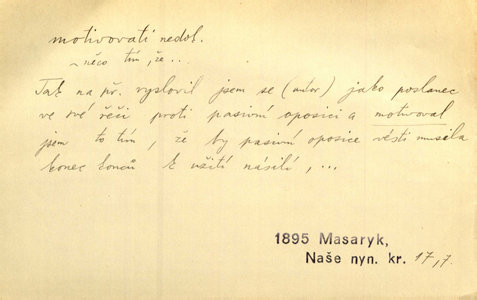 motivovati nedok.
~ něco tím, že...
Tak na př. vyslovil jsem se (autor) jako poslanec
ve své řeči proti pasivní oposici a motivoval
jsem to tím, že by pasivní oposice vésti musila
konec konců k užití násilí, ...
1895 Masaryk,
Naše nyn. kr. 17,7.